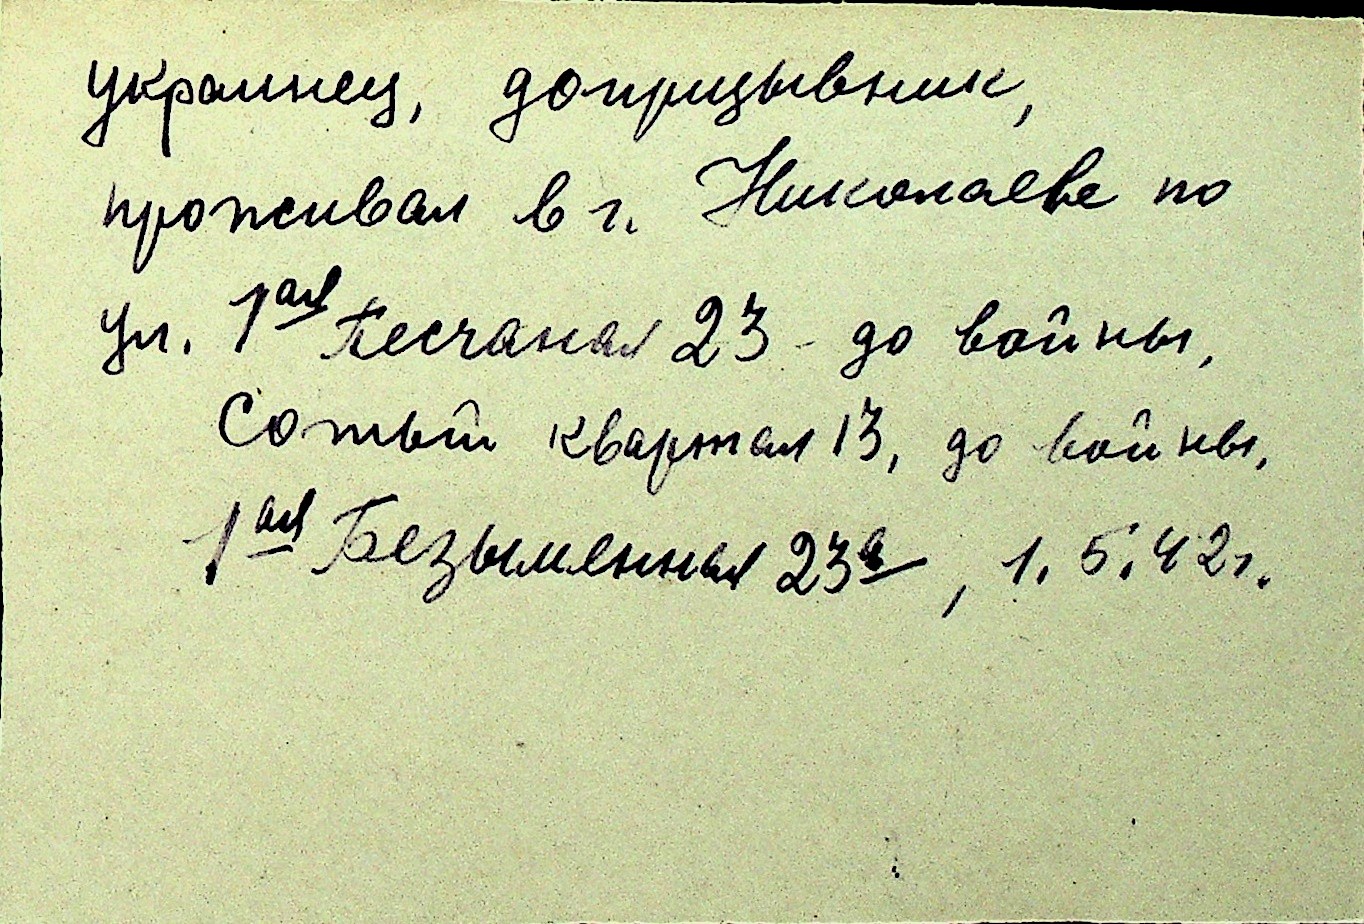 украинец, допризывник,
проживал в г. Николаеве по
ул. 1ая Песчаная 23 - до войны,
Сотый квартал 13, до войны,
1ая Безыменная 23а, 1.5.42г.